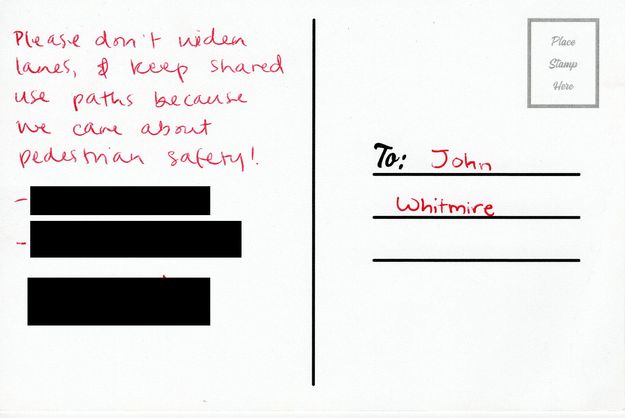 Please don't widen
lanes, & keep shared
use paths because
we care about
pedestrian safety!
-
-
Place
Stamp
Here
To: John
Whitmire